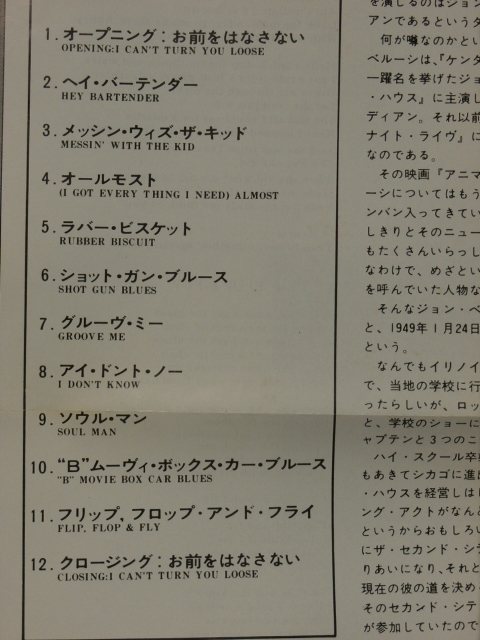 1. オープニング：お前をはなさない
OPENING:I CAN'T TURN YOU LOOSE
2. ヘイ・バーテンダー
HEY BARTENDER
3. メッシン・ウィズ・ザ・キッド
MESSIN' WITH THE KID
4. オールモスト
(I GOT EVERY THING I NEED) ALMOST
5. ラバー・ビスケット
RUBBER BISCUIT
6. ショット・ガン・ブルース
SHOT GUN BLUES
7. グルーヴ・ミー
GROOVE ME
8. アイ・ドント・ノー
I DON'T KNOW
9. ソウル・マン
SOUL MAN
10. “B”ムーヴィ・ボックス・カー・ブルース
"B" MOVIE BOX CAR BLUES
11. フリップ, フロップ・アンド・フライ
FLIP, FLOP & FLY
12. クロージング：お前をはなさない
CLOSING:I CAN'T TURN YOU LOOSE
を演じるのはジョン
アンであるというダ
何が噂なのかとい
ベルーシは、『ケンタ
一躍名を挙げたジョ
・ハウス』に主演し
ディアン。それ以前
ナイト・ライヴ』に
なのである。
その映画『アニマ
ーシについてはもう
ンバン入ってきてい
しきりとそのニュー
もたくさんいらっし
なわけで、めざとい
を呼んでいた人物な
そんなジョン・ベ
と、1949年1月24日
という。
なんでもイリノイ
で、当地の学校に行
ったらしいが、ロッ
と、学校のショーに
ャプテンと3つのこ
ハイ・スクール卒業
もあきてシカゴに進出
・ハウスを経営しは
ング・アクトがなんと
というからおもしろい
にザ・セカンド・シテ
りあいになり、それと
現在の彼の道を決め
そのセカンド・シテ
が参加していたので